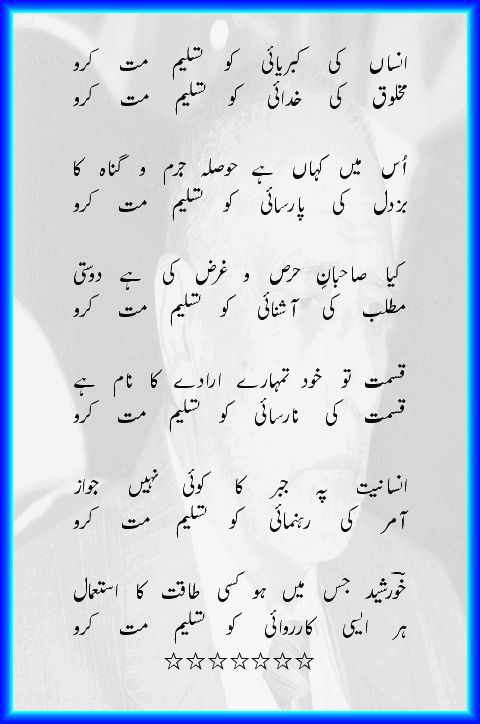 انساں کی کبریائی کو تسلیم مت کرو
مخلوق کی خدائی کو تسلیم مت کرو
اُس میں کہاں ہے حوصلہ جرم و گناہ کا
بزدل کی پارسائی کو تسلیم مت کرو
کیا صاحبانِ حرص و غرض کی ہے دوستی
مطلب کی آشنائی کو تسلیم مت کرو
قسمت تو خود تمہارے ارادے کا نام ہے
قسمت کی نارسائی کو تسلیم مت کرو
انسانیت پہ جبر کا کوئی نہیں جواز
آمر کی رہنمائی کو تسلیم مت کرو
خورشیدؔ جس میں ہو کسی طاقت کا استعمال
ہر ایسی کارروائی کو تسلیم مت کرو
☆☆☆☆☆☆☆